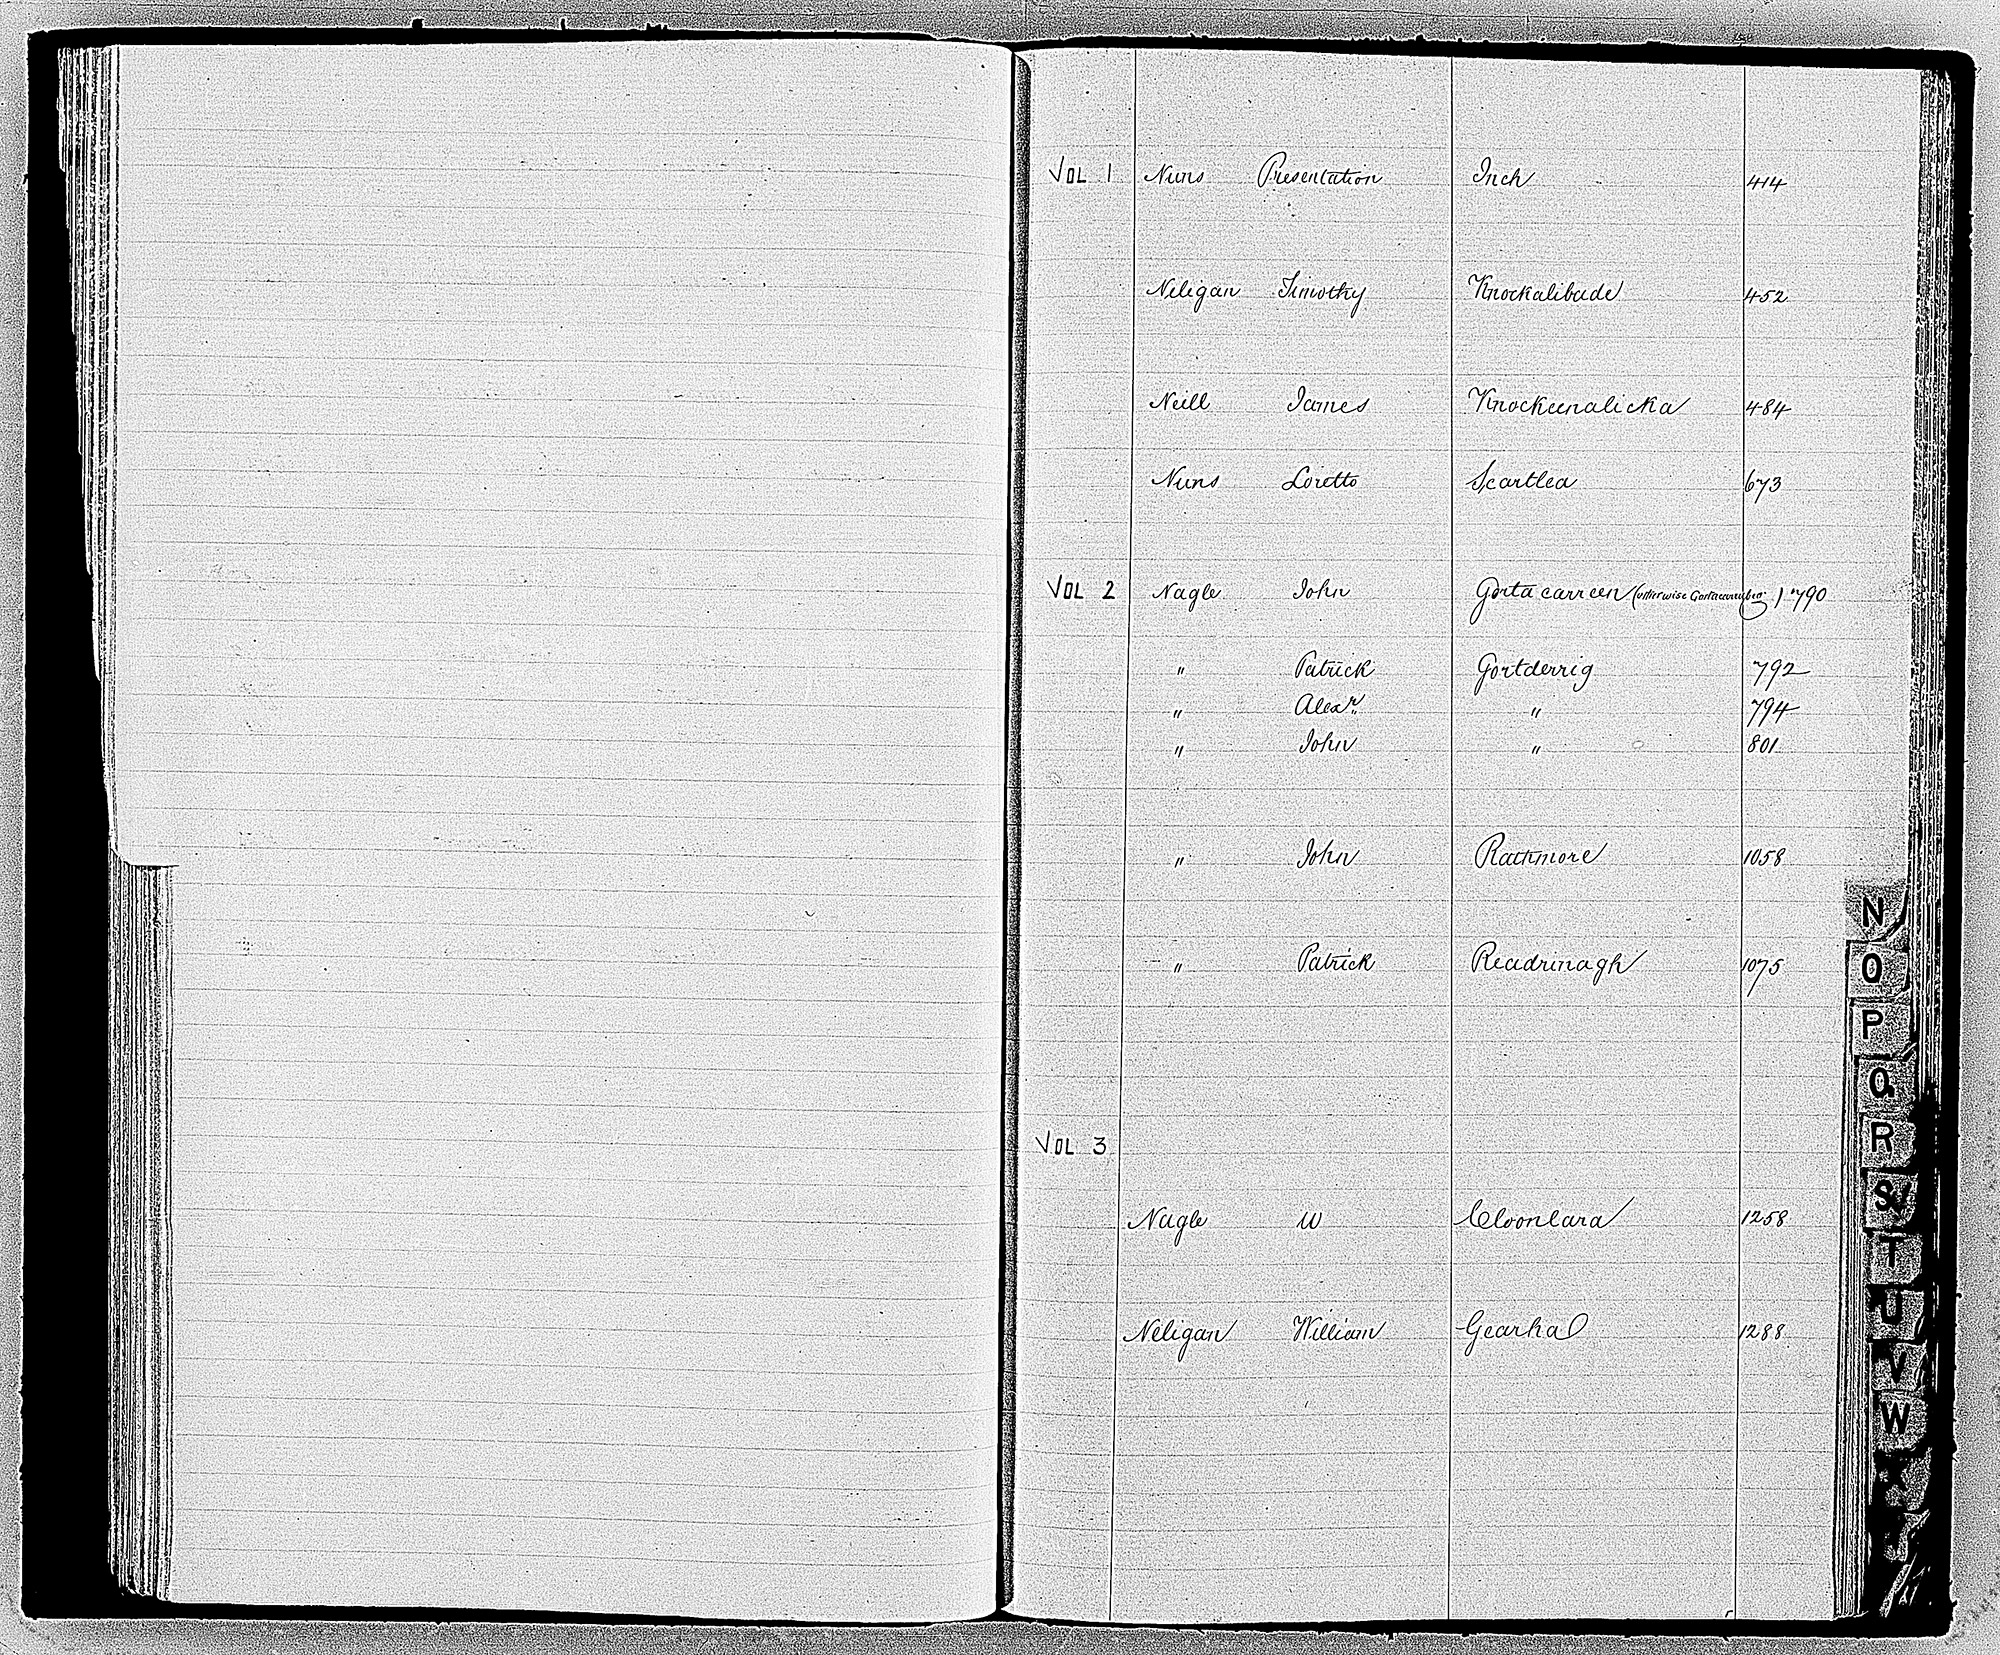 VOL 1 Nuns Presentation Inch 414
Neligan Timothy Knockalibade 452
Neill James Knockeenalicka 484
Nuns Loretto Scartlea 673
VOL 2 Nagle John Gortacarreen (otherwise ) 790
" Patrick Gortderrig 792
" Alexr " 794
" John " 801
" John Rathmore 1058
" Patrick Readrinagh 1075
VOL 3
Nagle W Cloonlara 1258
Neligan William Gearha 1288
N
O
P
Q
R
S
T
U
V
W